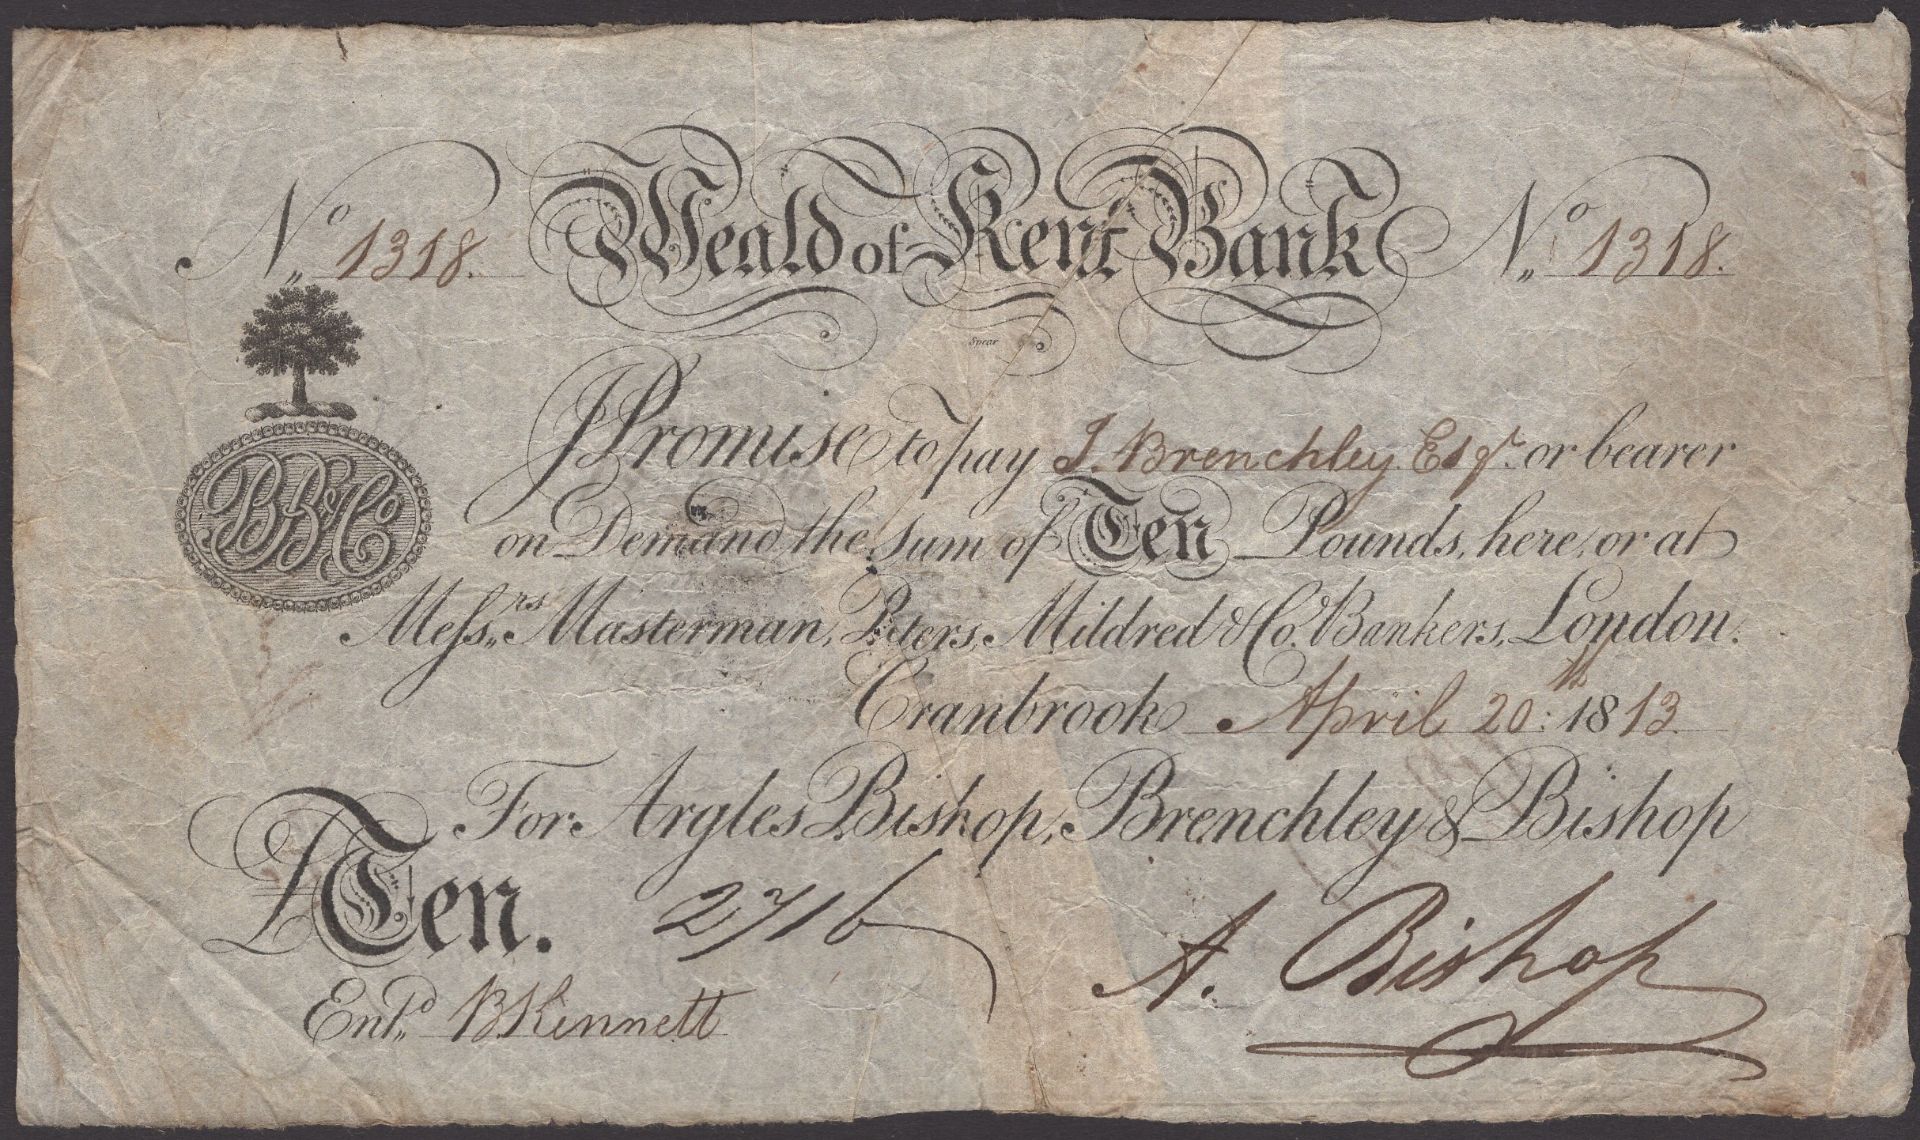 No. 1318. Weald of Kent Bank No. 1318.
Spear
I Promise to pay J. Brenchley Esqr. or bearer
on Demand the Sum of Ten Pounds, here, or at
Messrs. Masterman, Peters, Mildred & Co. Bankers, London.
BB&Co
Cranbrook April 20th: 1813.
For Argles Bishop, Brenchley & Bishop
£Ten.
A. Bishop
Entd. B Kennett